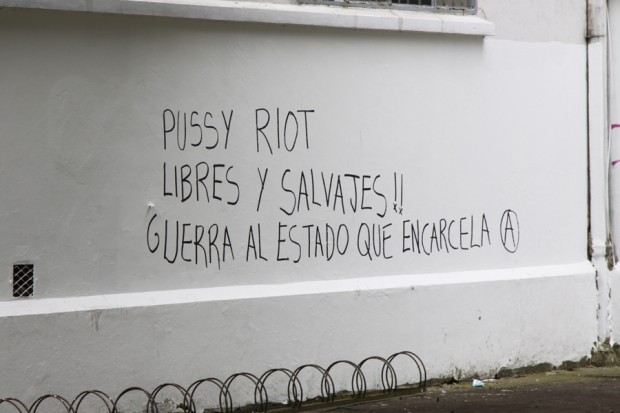 PUSSY RIOT
LIBRES Y SALVAJES!!
GUERRA AL ESTADO QUE ENCARCELA Ⓐ